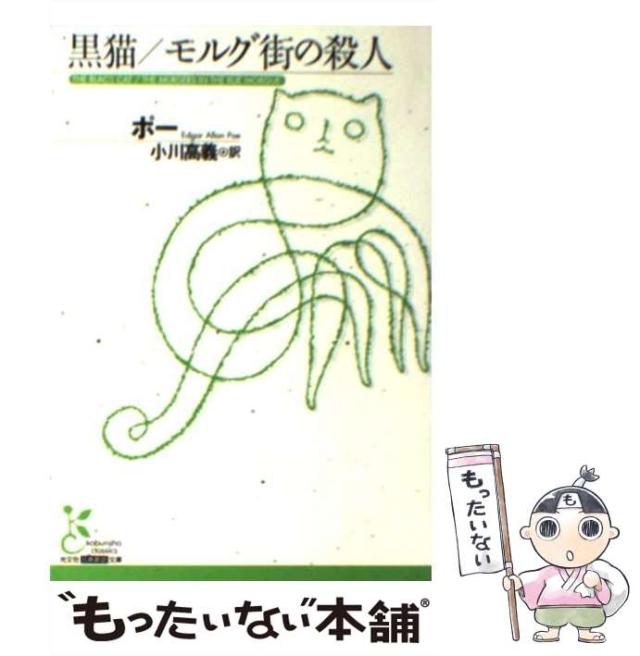 黒猫/モルグ街の殺人
THE BLACK CAT / THE MURDERS IN THE RUE MORGUE
ポー
Edgar Allan Poe
小川高義●訳
kobunsha
classics
光文社古典新訳文庫
も
もったいない
“もったいない”本舗®